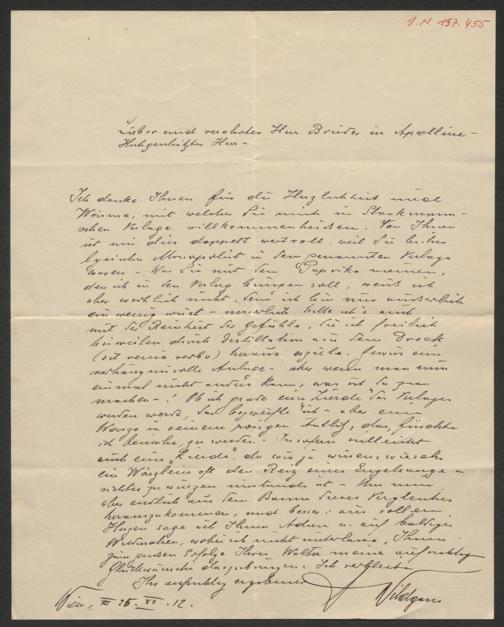 J. N. 157.455
Lieber und verehrter Herr Bruder in Apolline -
Hochgeschätzter Herr -
Ich danke Ihnen für die Herzlichkeit und
Wärme, mit welcher Sie mich im Staackmann-
schen Verlage willkommenheissen. Von Ihnen
ist mir dies doppelt wertvoll, weil Sie bisher
lyrischer Monopolist in dem genannten Verlage
waren - Was Sie mit dem Paprika meinen,
den ich in den Verlag bringen soll, weiß ich
aber wirklich nicht. Denn ich bin nur äusserlich
ein wenig wüst - innerlich halte ich's auch
mit der Reinheit der Gefühle, die ich freilich
bisweilen durch Destillation aus dem Dreck
(sit venia verbo) heraus
verhängnisvolle Anlage - aber wenn man nun
einmal nicht anders kann, was ist da zu
machen - ! Ob ich grade eine „Zierde" des Verlages
werden werde, das bezweifle ich - aber eine
Warze in seinem rosigen Antlitz, das fürchte
ich beinahe zu werden. Insofern vielleicht
auch eine „Zierde", da wir ja wissen, wie sehr
ein Wärzlein oft den Reiz eines Engelsange-
sichtes zu würzen imstande ist - Um nun
aber endlich aus dem Banne dieses Vergleiches
herauszukommen, und besser: aus vollem
Herzen sage ich Ihnen Adieu u. auf baldiges
Wiedersehen, wobei ich nicht unterlasse, Ihnen
zum großen Erfolge Ihres meine aufrichtig
Glückwünsche darzubringen. Ich verbleibe
Ihr aufrichtig ergebener
Wildgans
Wien, 25. XII. 12.